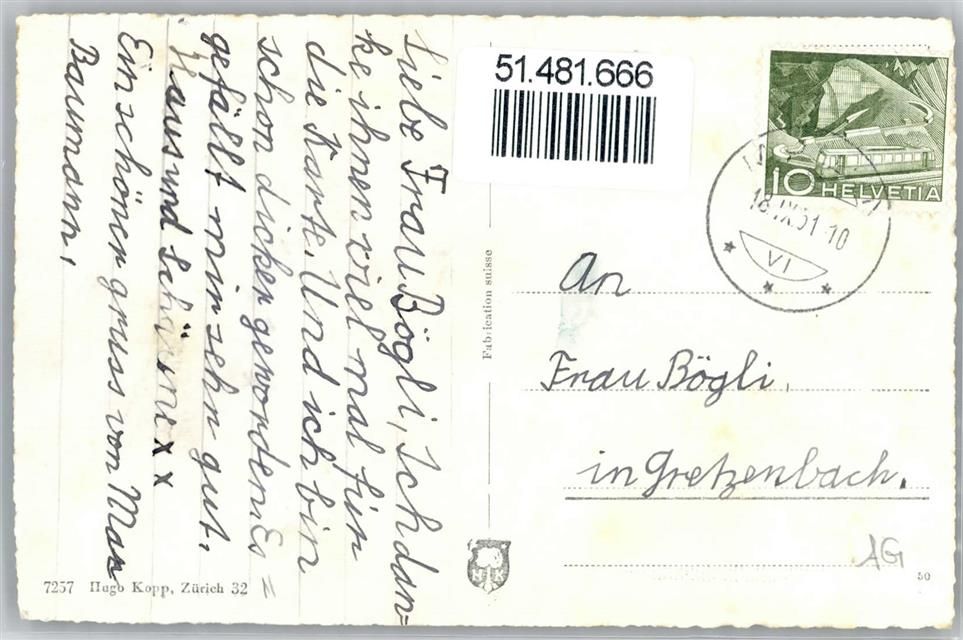 Liebe Frau Bögli, Ich dan-
ke ihnen viel mal für
die Karte. Und ich bin
schon dicker geworden Es =
gefällt mir sehr gut.
Haus und
Ein schöner gruss von Max
Baumann.
51.481.666
10 HELVETIA
18.IX.51-10
VI
Fabrication suisse
An
Frau Bögli,
in Gretzenbach.
AG
HK
7257 Hugo Kopp, Zürich 32
50